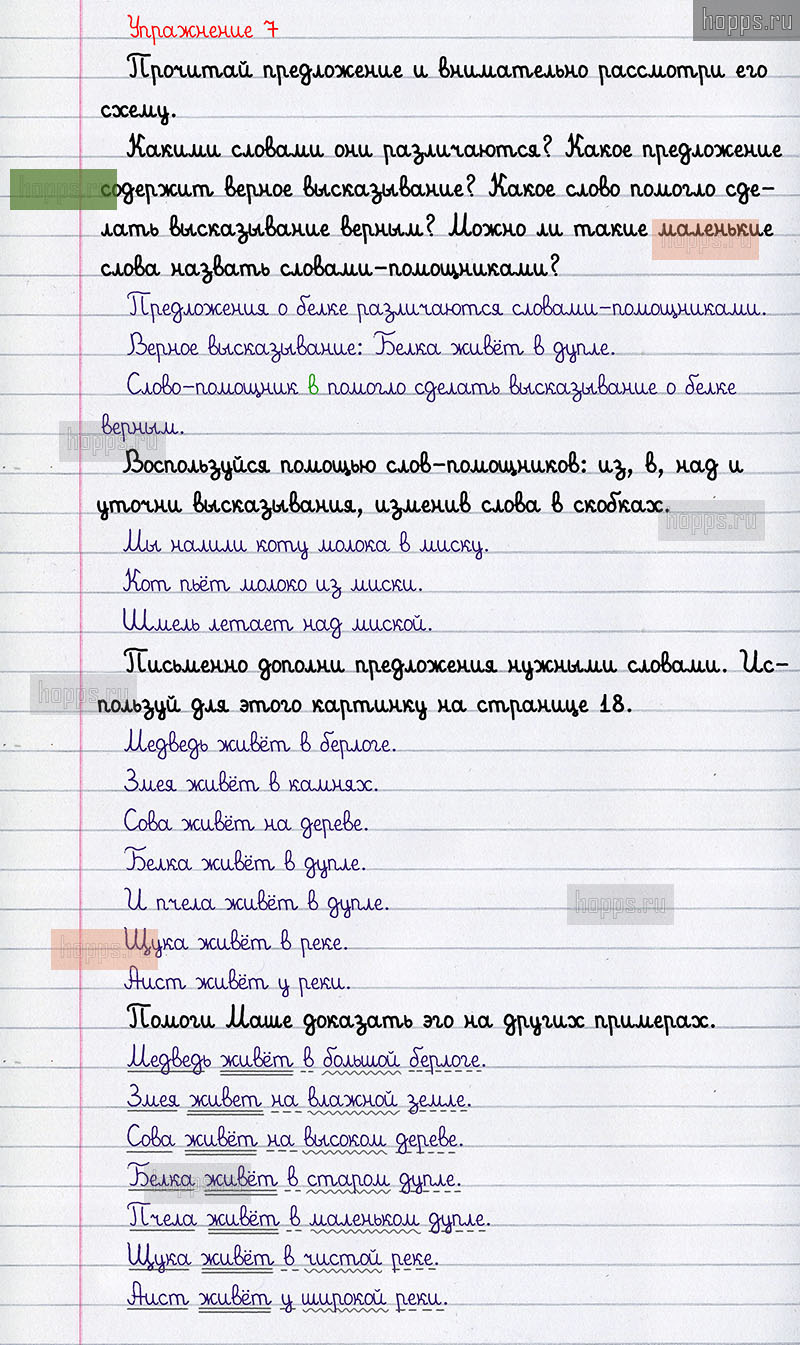 hopps.ru
Упражнение 7
Прочитай предложение и внимательно рассмотри его
схему.
Какими словами они различаются? Какое предложение
содержит верное высказывание? Какое слово помогло сде-
лать высказывание верным? Можно ли такие маленькие
слова назвать словами-помощниками?
Предложения о белке различаются словами-помощниками.
Верное высказывание: Белка живёт в дупле.
Слово-помощник в помогло сделать высказывание о белке
верным.
Воспользуйся помощью слов-помощников: из, в, над и
уточни высказывания, изменив слова в скобках.
Мы налили коту молока в миску.
Кот пьёт молоко из миски.
Шмель летает над миской.
Письменно дополни предложения нужными словами. Ис-
пользуй для этого картинку на странице 18.
Медведь живёт в берлоге.
Змея живёт в камнях.
Сова живёт на дереве.
Белка живёт в дупле.
И пчела живёт в дупле.
Щука живёт в реке.
Аист живёт у реки.
Помоги Маше доказать эго на других примерах.
Медведь живёт в большой берлоге.
Змея живет на влажной земле.
Сова живёт на высоком дереве.
Белка живёт в старом дупле.
Пчела живёт в маленьком дупле.
Щука живёт в чистой реке.
Аист живёт у широкой реки.
hopps.ru
hopps.ru
hopps.ru
hopps.ru
hopps.ru
hopps.ru
hopps.ru
hopps.ru